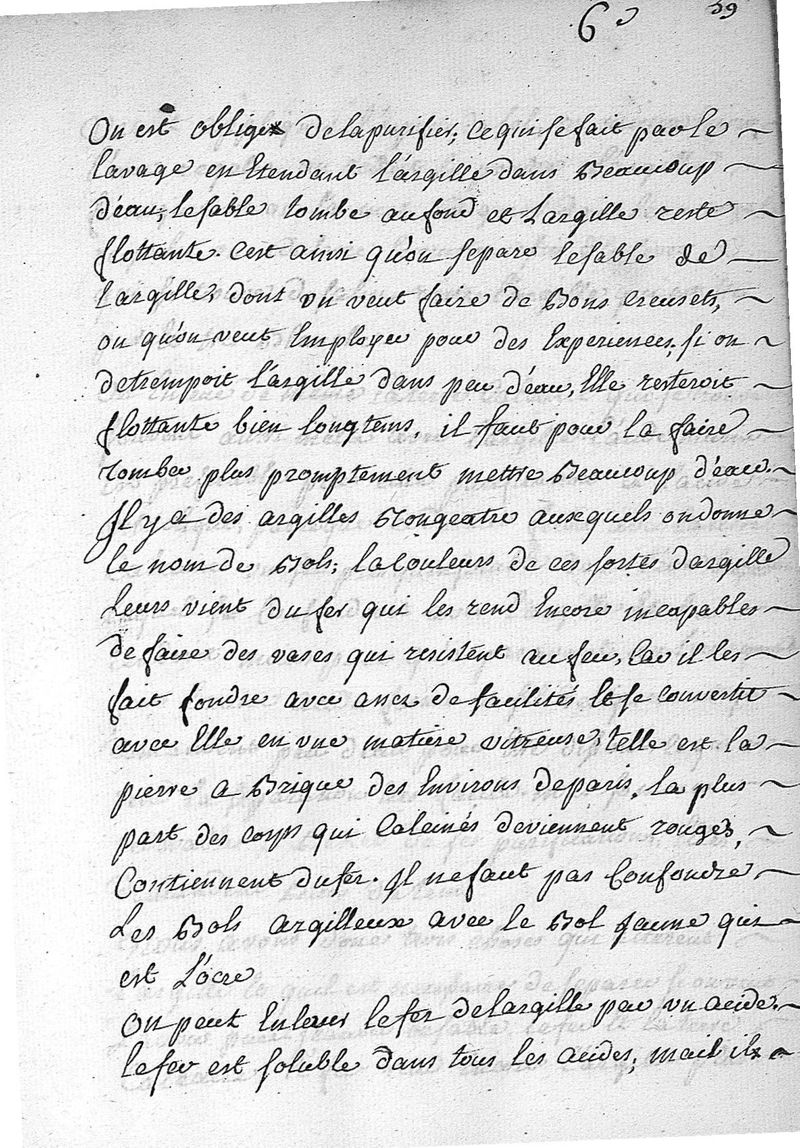 6e 59
On est obligé de la purifier; ce qui se fait par le
lavage en Etendant l'argille dans Beaucoup
d'eau, le sable tombe au fond et Largille reste
flottante. C'est ainsi qu'on separe le sable de
l'argille, dont on veut faire de Bons creusets,
ou qu'on veut Employer pour des Experiences, si on
detrempoit l'argille dans peu d'eau, Elle resteroit
flottante bien longtems, il faut pour la faire
tomber plus promptement mettre Beaucoup d'eau.
Il y a des argilles Rougeatre auxquels on donne
le nom de Bols; la Couleurs de ces sortes dargille
Leurs vient du fer qui les rend Encore incapables
de faire des vases qui resistent au feu, Car il les
fait fondre avec assez de facilités Et se convertit
avec Elle en une matiere vitreuse, telle est la
pierre a Brique des Environs de paris, la plus
part des corps qui Calcinés deviennent rouges,
Contiennent du fer. Il ne faut pas Confondre
Les Bols argilleux avec le Bol Jaune qui
est L'ocre
On peut Enlever le fer de largille par un acide.
le fer est soluble dans tous les acides, mais ils